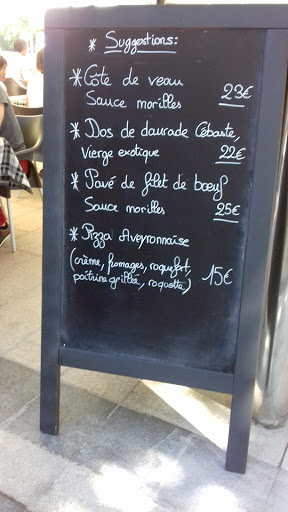 * Suggestions:
* Côte de veau
Sauce morilles 23€
* Dos de daurade Cébaste,
Vierge exotique 22€
* Pavé de filet de bœuf
Sauce morilles 25€
* Pizza Aveyronnaise
(crème, fromages, roquefort,
poitrine grillée, roquette) 15€